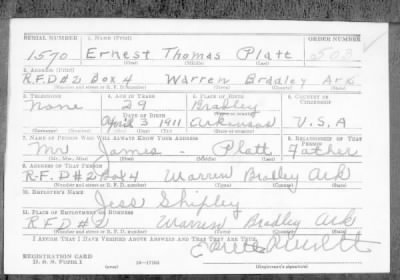 SERIAL NUMBER 1. NAME (Print) ORDER NUMBER
1570 Ernest Thomas Platt
(First) (Middle) (Last)
2. ADDRESS (Print)
R.F.D#2 Box 4 Warren Bradley Ark
(Number and street or R. F. D. number) (Town) (County) (State)
3. TELEPHONE 4. AGE IN YEARS 5. PLACE OF BIRTH 6. COUNTRY OF CITIZENSHIP
None 29 Bradley
DATE OF BIRTH
April 3 1911 Arkansas U.S.A
7. NAME OF PERSON WHO WILL ALWAYS KNOW YOUR ADDRESS 8. RELATIONSHIP OF THAT PERSON
Mr James - Platt Father
(Mr., Mrs., Miss) (First) (Middle) (Last)
9. ADDRESS OF THAT PERSON
R-F.D#2 Box 4 Warren Bradley Ark
(Number and street or R. F. D. number) (Town) (County) (State)
10. EMPLOYER'S NAME
Jess Shipley
11. PLACE OF EMPLOYMENT OR BUSINESS
R F D #2 Warren Bradley Ark
(Number and street or R. F. D. number) (Town) (County) (State)
I AFFIRM THAT I HAVE VERIFIED ABOVE ANSWERS AND THAT THEY ARE TRUE.
REGISTRATION CARD
D. S. S. FORM 1
(over) (Registrant's signature)